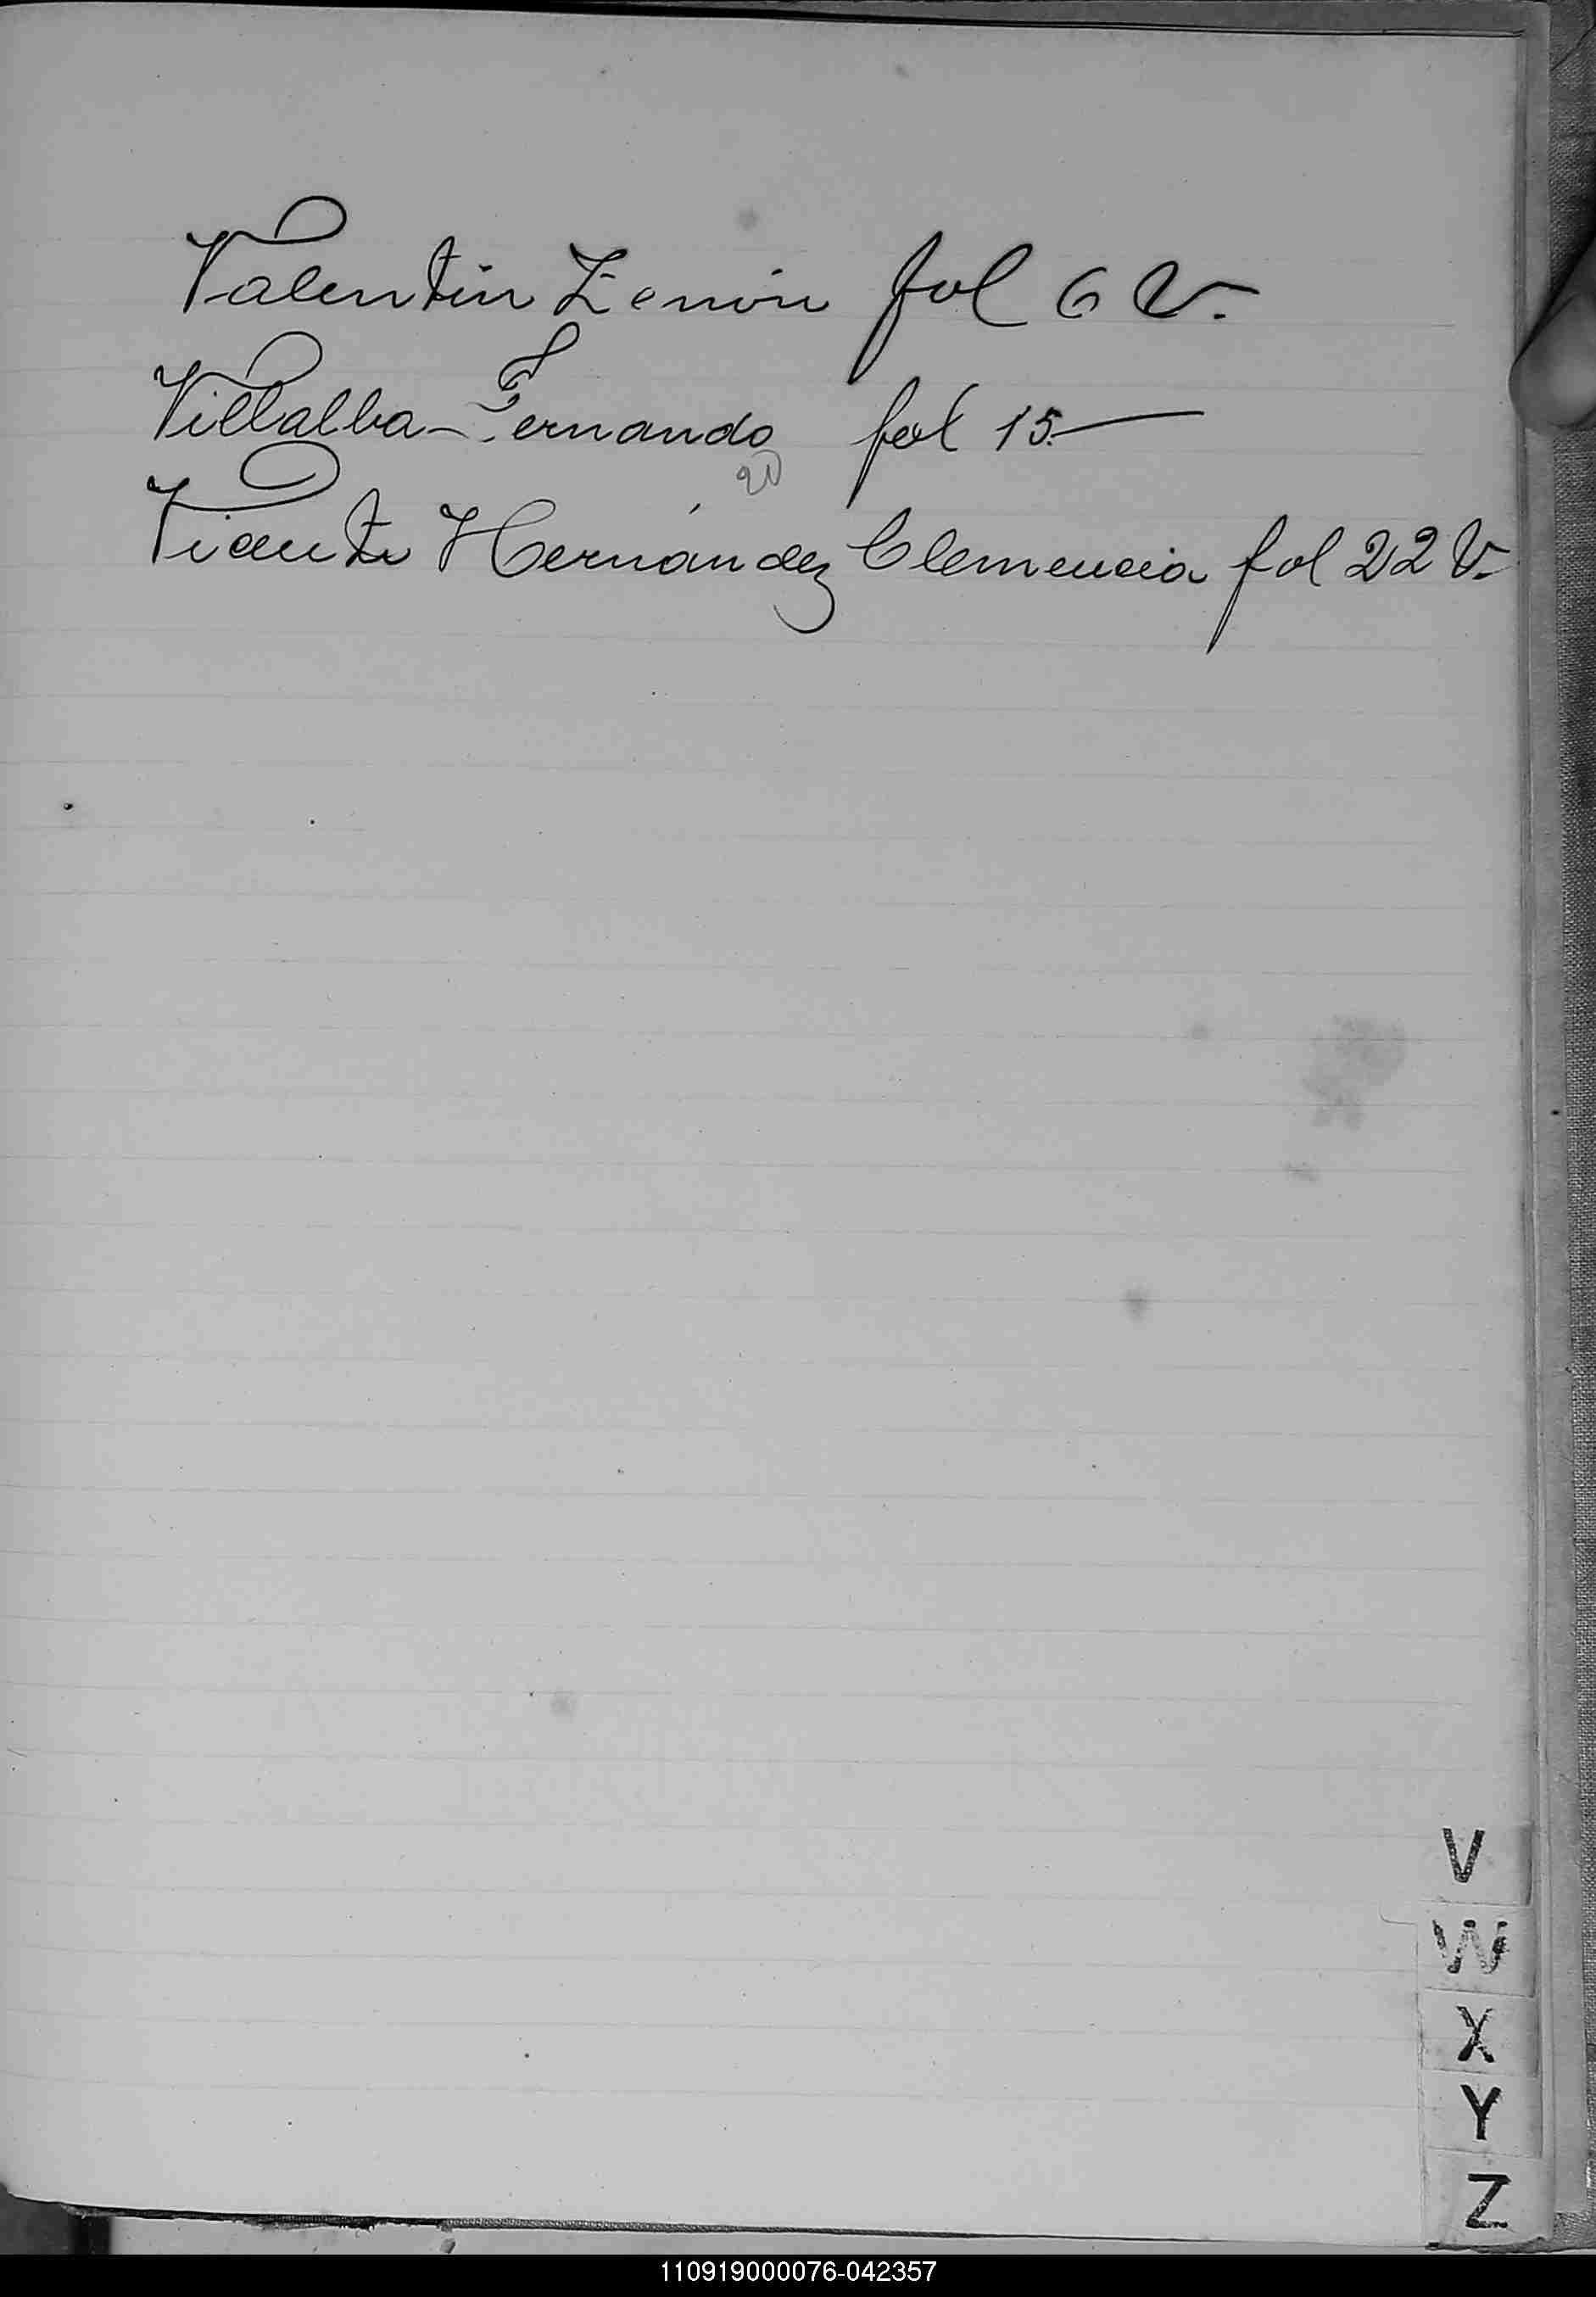 Valentin Zenón fol 6 V.
Villalba - Fernando fol 15.—
Vicente Hernández Clemencia fol 22 V.
V
W
X
Y
Z
110919000076-042357